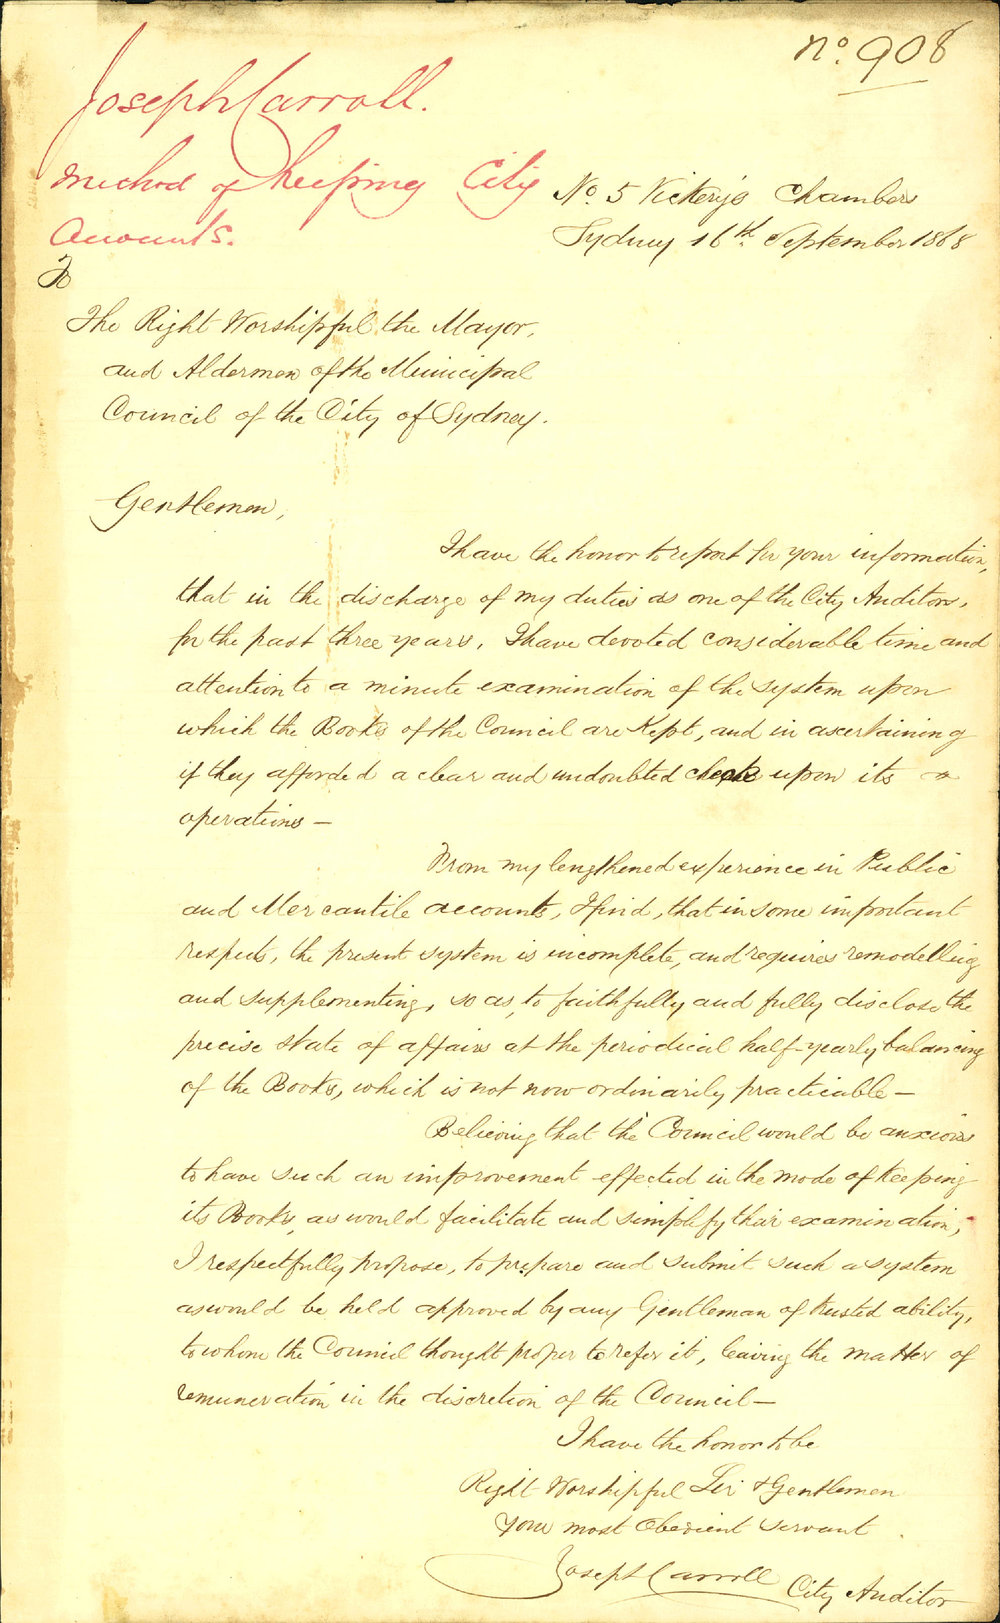 No. 908
Joseph Carroll.
Method of keeping City
Accounts.
No. 5 Vickery's Chambers
Sydney 16th. September 1868
To
The Right Worshipful the Mayor,
and Aldermen of the Municipal
Council of the City of Sydney.
Gentlemen,
I have the honor to report for your information,
that in the discharge of my duties as one of the City Auditors,
for the past three years, I have devoted considerable time and
attention to a minute examination of the system upon
which the Books of the Council are Kept, and in ascertaining
if they afforded a clear and undoubted check upon its
operations —
From my lengthened experience in Public
and Mercantile accounts, I find, that in some important
respects, the present system is incomplete, and requires remodelling
and supplementing, so as, to faithfully and fully disclose the
precise state of affairs at the periodical half-yearly balancing
of the Books, which is not now ordinarily practicable —
Believing that the Council would be anxious
to have such an improvement effected in the mode of Keeping
its Books, as would facilitate and simplify their examination,
I respectfully propose, to prepare and submit such a system
as would be held approved by any Gentleman of trusted ability,
to whom the Council thought proper to refer it, leaving the matter of
remuneration in the discretion of the Council —
I have the honor to be
Right Worshipful Sir & Gentlemen
Your most Obedient Servant
Joseph Carroll City Auditor